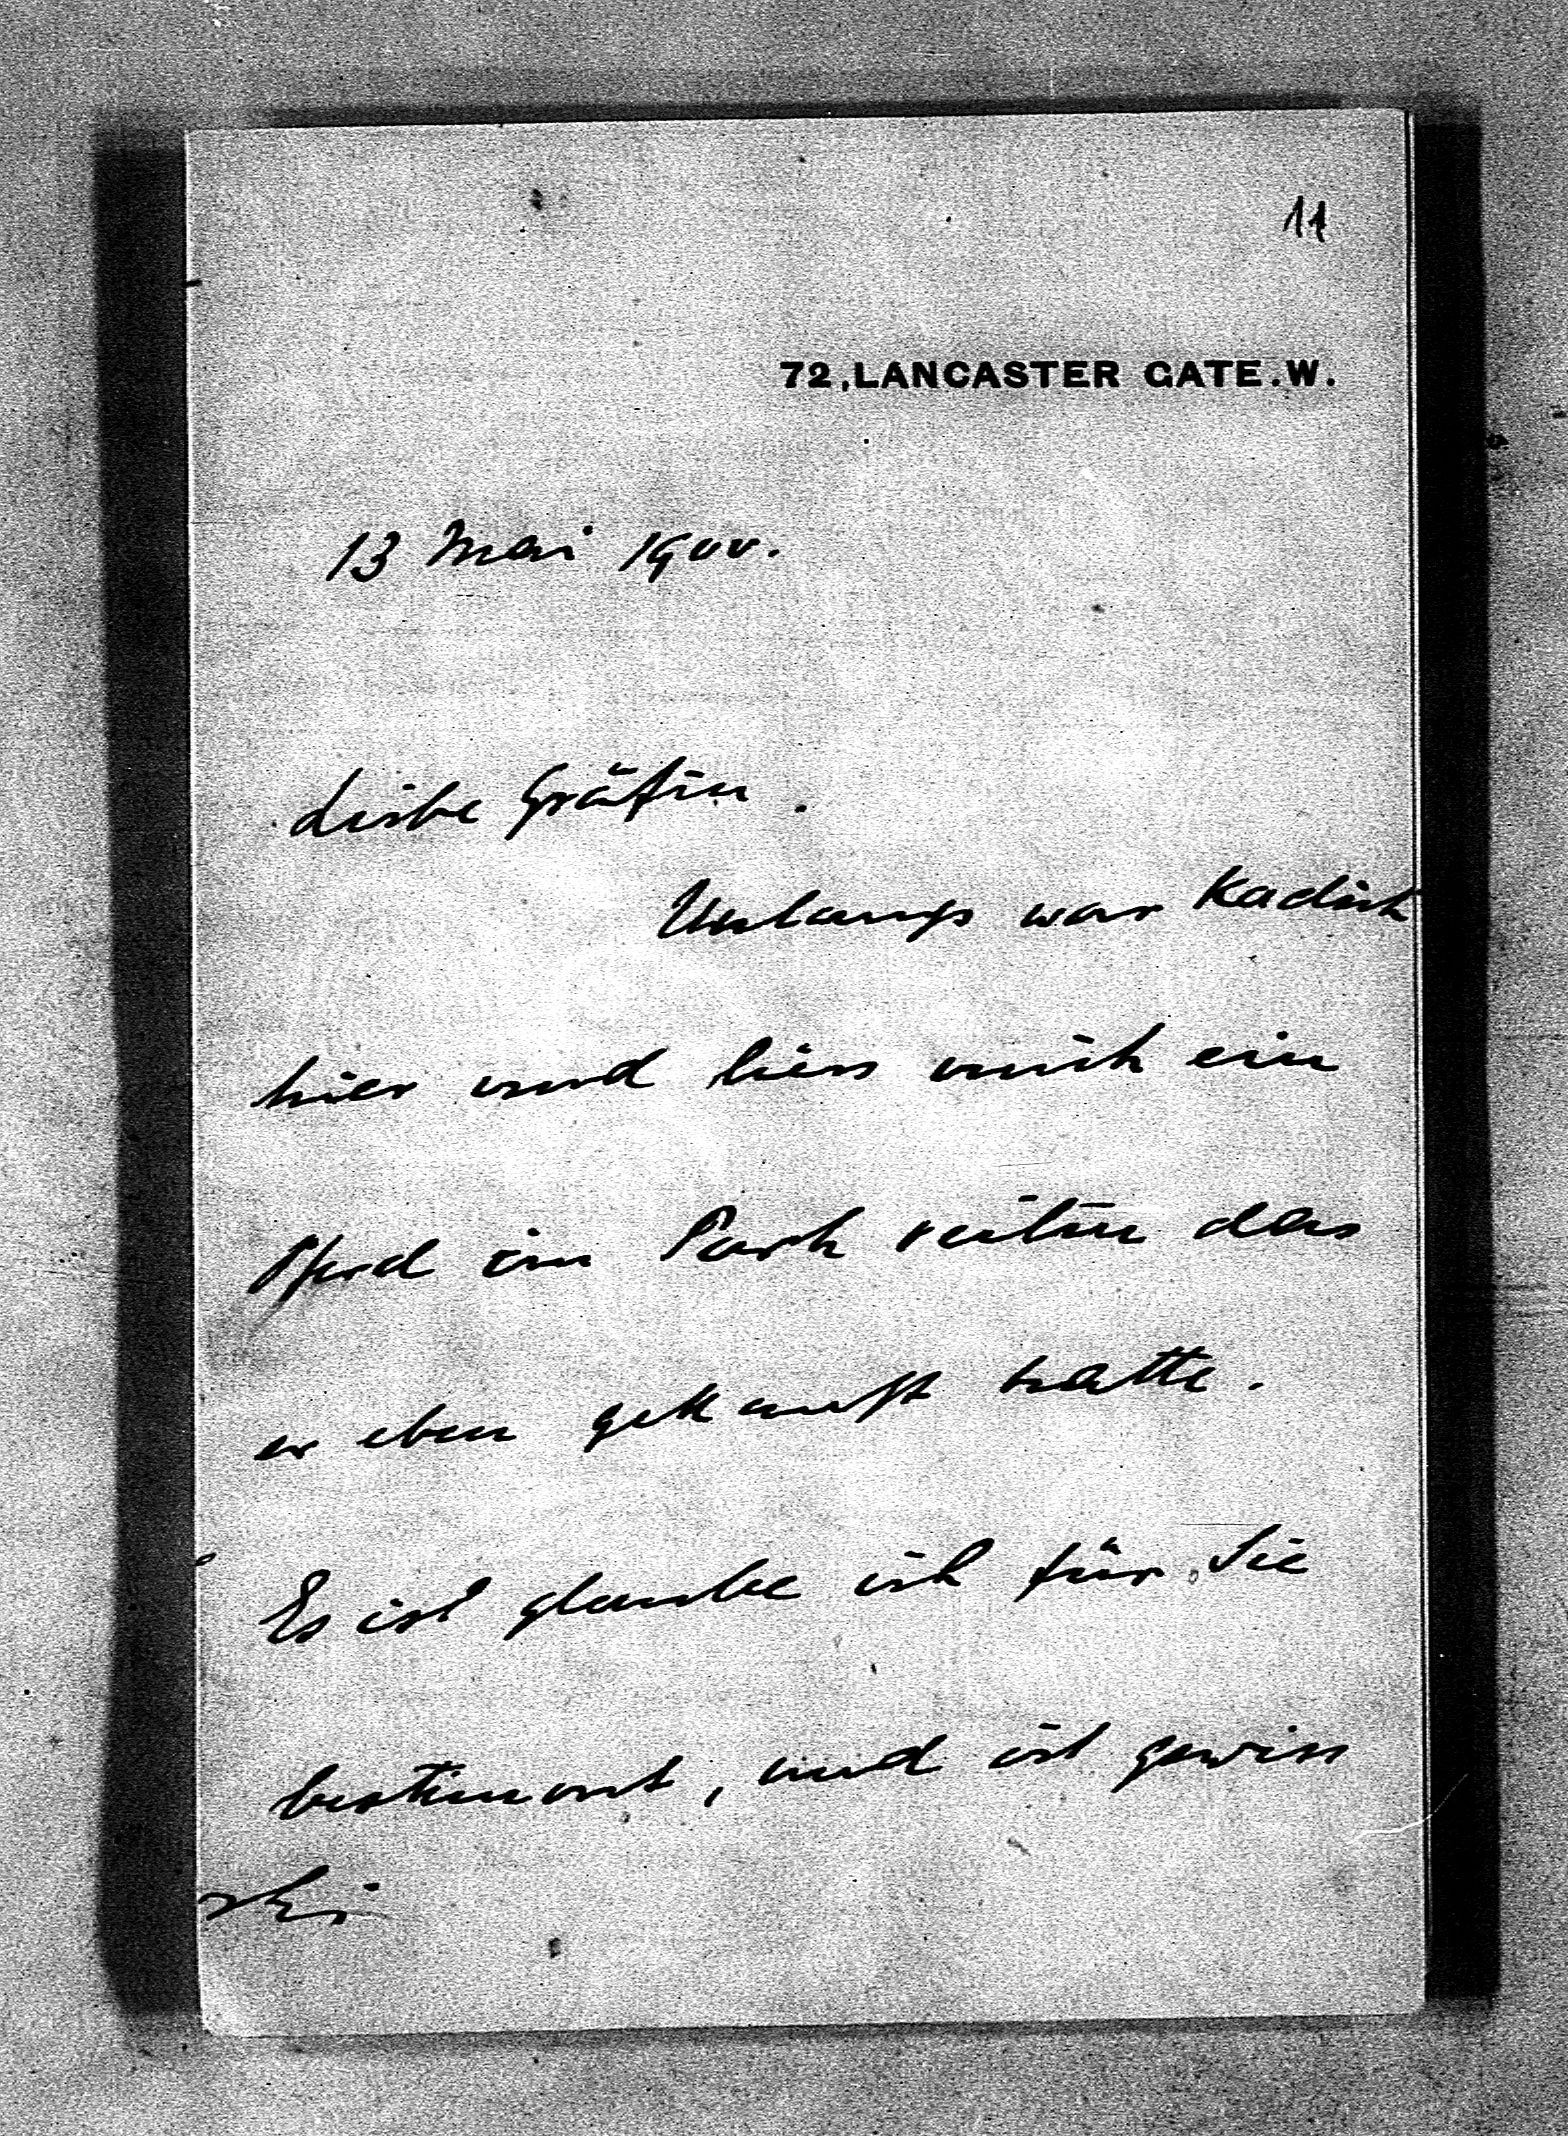 11
72, LANCASTER GATE. W.
13 Mai 1900.
Liebe Gräfin.
Unlangs war Kadich
hier und liess mich ein
Pferd im Park reiten das
er eben gekauft hatte.
Es ist glaube ich für Sie
bestimmt, und ist gewiss